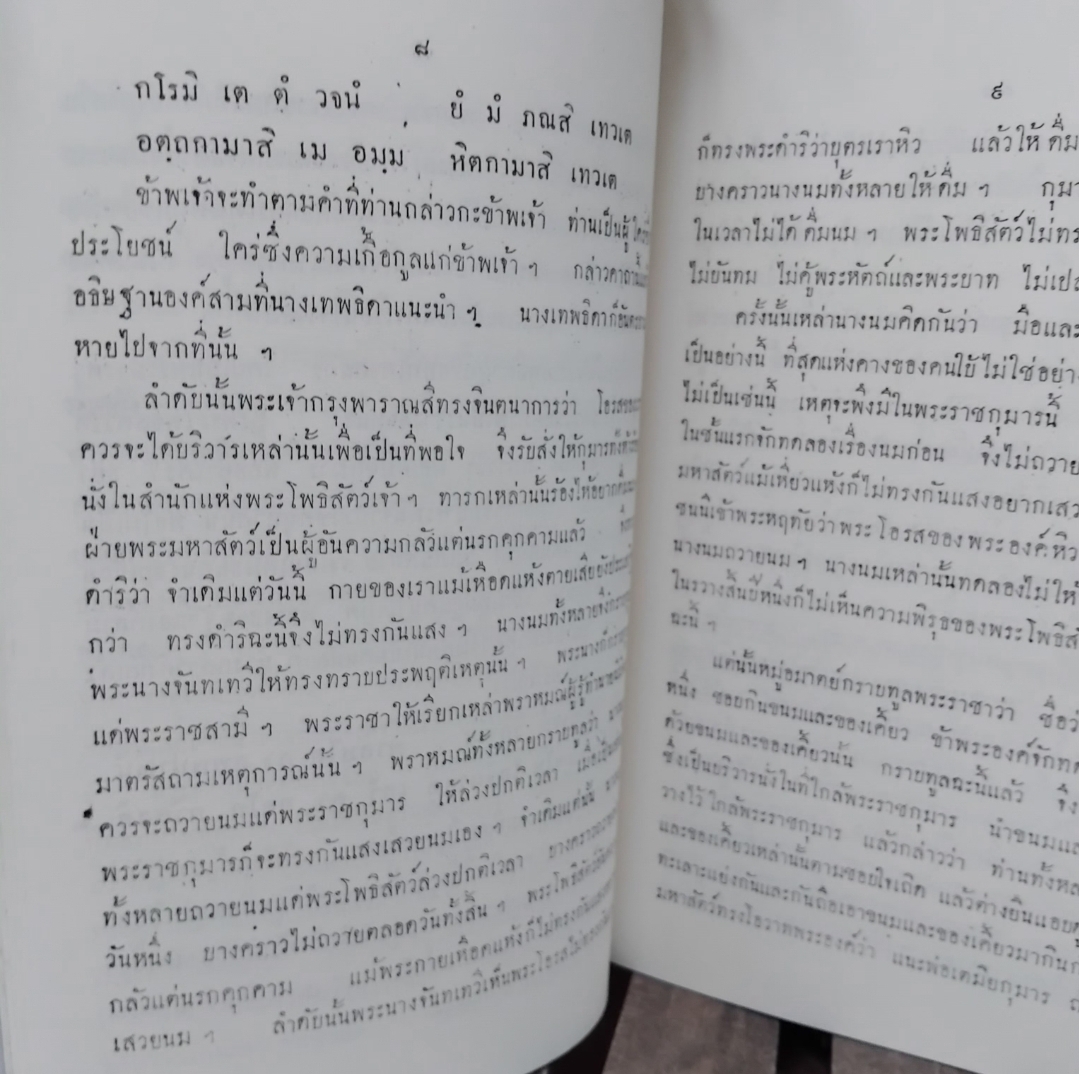 ๘
กโรมิ เต ตํ วจนํ ยํ มํ ภณสิ เทวเต
อตฺถกามาสิ เม อมฺม หิตกามาสิ เทวเต
ข้าพเจ้าจะทำตามคำที่ท่านกล่าวกะข้าพเจ้า ท่านเป็นผู้ใคร่
ประโยชน์ ใคร่ซึ่งความเกื้อกูลแก่ข้าพเจ้า ๆ กล่าวคาถา
อธิษฐานองค์สามที่นางเทพธิดาแนะนำ ๆ นางเทพธิดาก็
หายไปจากที่นั้น ๆ
ลำดับนั้นพระเจ้ากรุงพาราณสีทรงจินตนาการว่า โอรส
ควรจะได้บริวารเหล่านั้นเพื่อเป็นที่พอใจ จึงรับสั่งให้กุมาร
นั่งในสำนักแห่งพระโพธิสัตว์เจ้า ๆ ทารกเหล่านั้นร้องไห้อยาก
ฝ่ายพระมหาสัตว์เป็นผู้อันความกลัวแต่นรกคุกคามแล้ว
ดำริว่า จำเดิมแต่วันนี้ กายของเราแม้เหือดแห้งตายเสียยังประเสริฐ
กว่า ทรงดำริฉะนี้จึงไม่ทรงกันแสง ๆ นางนมทั้งหลายจึง
พระนางจันทเทวีให้ทรงทราบประพฤติเหตุนั้น ๆ พระนางก็
แด่พระราชสามี ๆ พระราชาให้เรียกเหล่าพราหมณ์ผู้รู้ทำนาย
มาตรัสถามเหตุการณ์นั้น ๆ พราหมณ์ทั้งหลายกราบทูลว่า
ควรจะถวายนมแด่พระราชกุมาร ให้ล่วงปกติเวลา เมื่อเป็น
พระราชกุมารก็จะทรงกันแสงเสวยนมเอง ๆ จำเดิมแต่นั้น
ทั้งหลายถวายนมแด่พระโพธิสัตว์ล่วงปกติเวลา บางคราว
วันหนึ่ง บางคราวไม่ถวายตลอดวันทั้งสิ้น ๆ พระโพธิสัตว์
กลัวแต่นรกคุกคาม แม้พระกายเหือดแห้งก็ไม่ทรงกันแสง
เสวยนม ๆ ลำดับนั้นพระนางจันทเทวีเห็นพระโอรสไม่
๙
ก็ทรงพระดำริว่าบุตรเราหิว แล้วให้ดื่ม
บางคราวนางนมทั้งหลายให้ดื่ม ๆ
ในเวลาไม่ได้ดื่มนม ๆ พระโพธิสัตว์ไม่ทร
ไม่บันทม ไม่คู้พระหัตถ์และพระบาท ไม่เปล
ครั้งนั้นเหล่านางนมคิดกันว่า มือและ
เป็นอย่างนี้ ที่สุดแห่งคางของคนใบ้ไม่ใช่อย่า
ไม่เป็นเช่นนี้ เหตุจะพึงมีในพระราชกุมารนี้
ในชั้นแรกจักทดลองเรื่องนมก่อน จึงไม่ถวาย
มหาสัตว์แม้เหี่ยวแห้งก็ไม่ทรงกันแสงอยากเสว
ชนนีเข้าพระหฤทัยว่าพระโอรสของพระองค์หิว
นางนมถวายนม ๆ นางนมเหล่านั้นทดลองไม่ให้
ในรวางสิ้นปีหนึ่งก็ไม่เห็นความพิรุธของพระโพธิสั
นะนี้ ๆ
แต่นั้นหมู่อมาตย์กราบทูลพระราชาว่า ชื่อว
หนึ่ง ชอบกินขนมและของเคี้ยว ข้าพระองค์จักทด
ด้วยขนมและของเคี้ยวนั้น กราบทูลฉะนี้แล้ว จึง
ซึ่งเป็นบริวารนั่งในที่ใกล้พระราชกุมาร นำขนมแล
วางไว้ใกล้พระราชกุมาร แล้วกล่าวว่า ท่านทั้งหล
และของเคี้ยวเหล่านั้นตามชอบใจเถิด แล้วต่างยืนแอบด
ทะเลาะแย่งกันและกันถือเอาขนมและของเคี้ยวมากินก
มหาสัตว์ทรงโอวาทพระองค์ว่า แนะพ่อเตมิยกุมาร